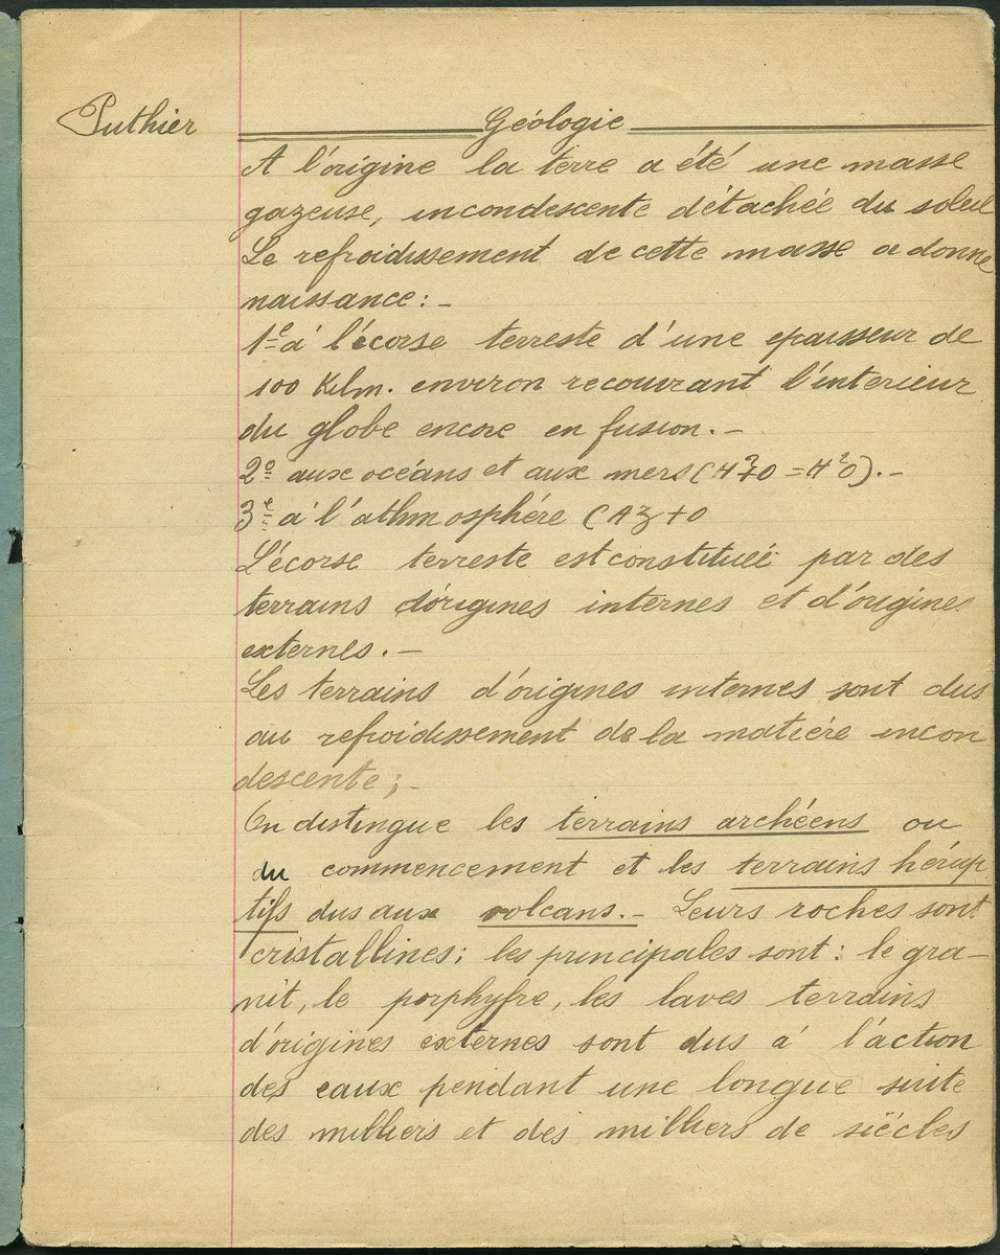 Puthier
Géologie
A l'origine la terre a été une masse
gazeuse, incondescente détachée du soleil
Le refroidissement de cette masse a donne
naissance : -
1e à l'écorse terreste d'une epaisseur de
100 Kilm. environ recouvrant l'interieur
du globe encore en fusion. -
2º aux océans et aux mers (H2+0 = H20). -
3e à l'athmosphére (AZ+0
L'écorse terreste est constituée par des
terrains d'origines internes et d'origines
externes. -
Les terrains d'origines internes sont dus
au refroidissement de la matiére incon
descente ; -
On distingue les terrains archéens ou
du commencement et les terrains hérup
tifs dus aux volcans. - Leurs roches sont
cristallines ; les principales sont : le gra-
nit, le porphyfre, les laves terrains
d'origines externes sont dus á l'áction
des eaux pendant une longue suite
des milliers et des milliers de siécles